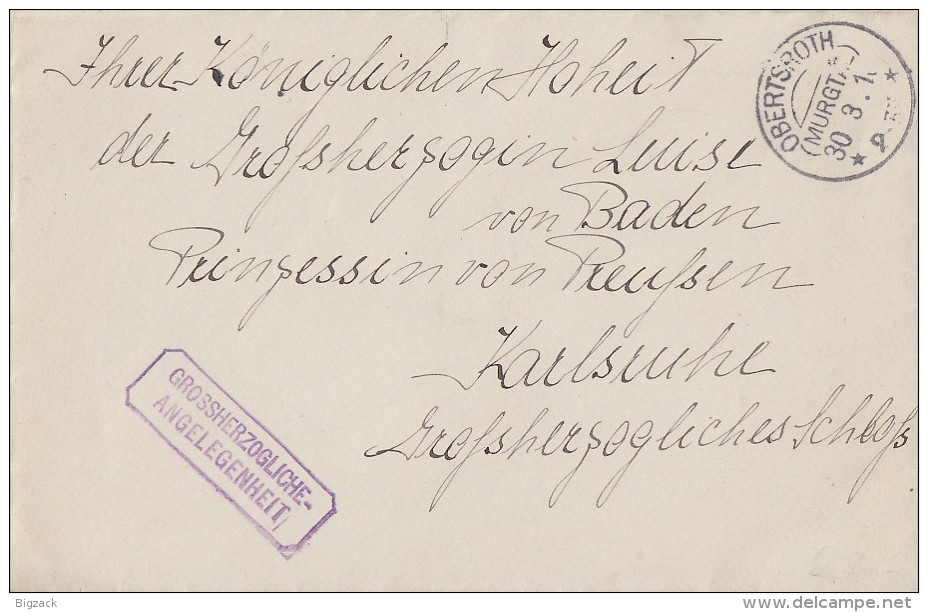 Ihrer Königlichen Hoheit
der Großherzogin Luise
von Baden
Prinzessin von Preußen
Karlsruhe
Großherzogliches Schloß
OBERTSROTH
(MURGTAL)
30 3.1
GROSSHERZOGLICHE-
ANGELEGENHEIT
Bigzack
www.delcampe.net